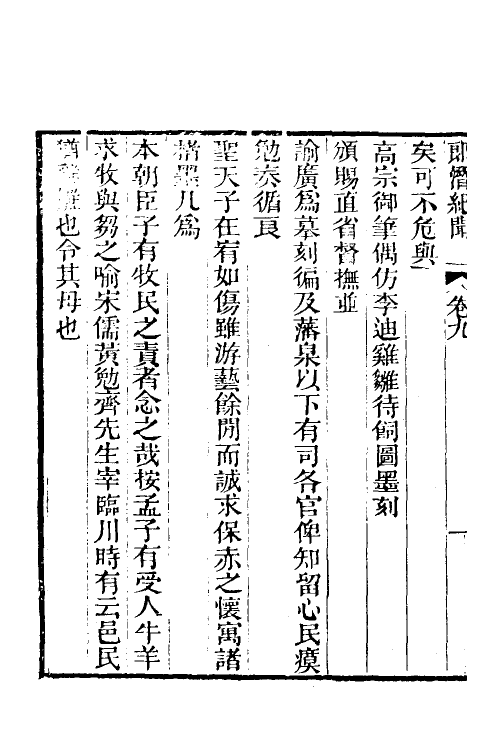 卽潛紀聞 卷九 一
矣可不危與
高宗御筆偶仿李迪雞雛待飼圖墨刻
頒賜直省督撫並
諭廣爲摹刻徧及藩臬以下有司各官俾知留心民瘼
勉奏循良
聖天子在宥如傷雖游藝餘閒而誠求保赤之懷寓諸
楮墨凡爲
本朝臣子有牧民之責者念之哉按孟子有受人牛羊
求牧與芻之喻宋儒黃勉齋先生宰臨川時有云邑民
猶雞雛也令其母也